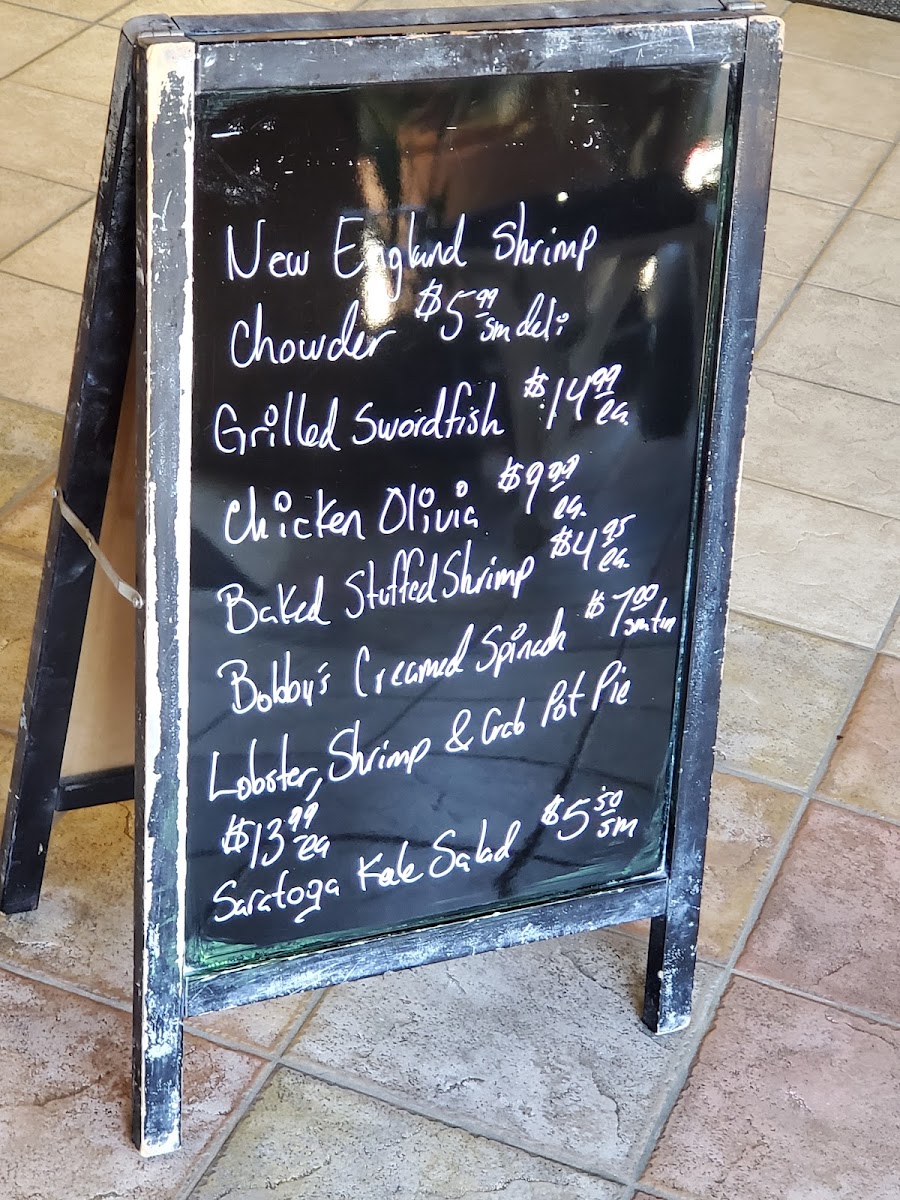 New England Shrimp
Chowder $5.99 sm deli
Grilled Swordfish $14.99 ea.
Chicken Olivia $9.99 ea.
Baked Stuffed Shrimp $4.95 ea.
Bobby's Creamed Spinach $7.00 sm tin
Lobster, Shrimp & Crab Pot Pie
$13.99 ea
Saratoga Kale Salad $5.50 sm